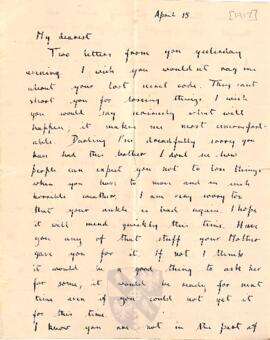 April 18 [1917]
My dearest
Two letters from you yesterday
evening. I wish you wouldn't rag me
about your lost code. They can't
shoot you for loosing things, I wish
you would say seriously what will
happen, it makes me most uncomfort-
able. Darling I'm dreadfully sorry you
have had this bother I don't see how
people can expect you not to lose things
when you have to move and in such
horrible weather. I am very sorry too
that your ankle is bad again. I hope
it will mend quickly this time. Have
you any of that stuff your Mother
gave you for it. If not I think
it would be a good thing to ask her
for some, it would be ready for next
time even if you could not get it
for this time.
I know you are not in the part of